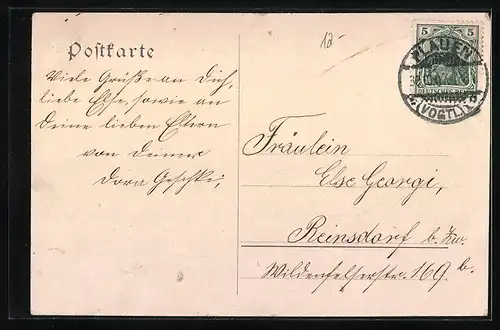 Postkarte
12-
5 5
DEUTSCHES REICH
PLAUEN
(VOGTL.)
Viele Grüße an Dich,
liebe Else, sowie an
Deine lieben Eltern
von Deiner
Dora Geschke,
Fräulein
Else Georgi,
Reinsdorf b. Zw.
Wildenfelserstr. 169 b.